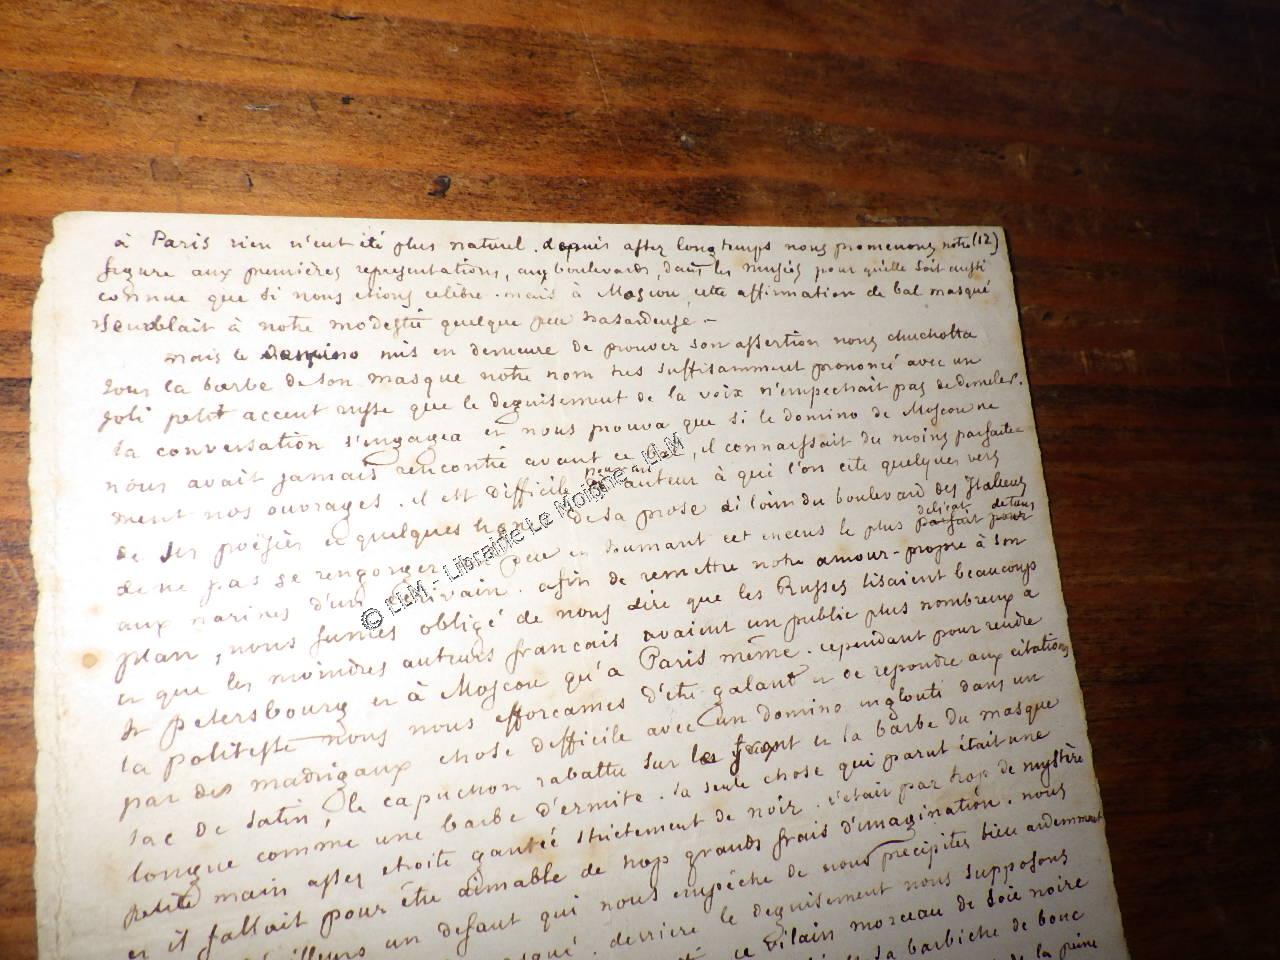 à Paris rien n'eut été plus naturel. depuis assez longtemps nous promenons notre (12)
figure aux premières representations, aux boulevards, dans les musées pour qu'elle soit aussi
connue que si nous etions celèbre. mais à Moscou, cette affirmation de bal masqué
semblait à notre modestie quelque peu hasardeuse –
mais le domino mis en demeure de prouver son assertion nous chuchotta
sous la barbe de son masque notre nom tres suffisamment prononcé avec un
joli petit accent russe que le deguisement de la voix n'empechait pas de demeler.
la conversation s'engagea et nous prouva que si le domino de Moscou ne
nous avait jamais rencontré avant ce bal, il connaissait du moins parfaite
ment nos ouvrages. il est difficile pour un auteur à qui l'on cite quelques vers
de ses poësies et quelques lignes de sa prose si loin du boulevard des Italiens
de ne pas se rengorger un peu en humant cet encens le plus délicat de tous parfait pour
aux narines d'un écrivain. afin de remettre notre amour-propre à son
plan, nous fumes obligé de nous dire que les Russes lisaient beaucoup
et que les moindres auteurs francais avaient un public plus nombreux à
St Petersbourg et à Moscou qu'à Paris même. cependant pour rendre
la politesse nous nous efforcames d'être galant et de repondre aux citations
par des madrigaux chose difficile avec un domino englouti dans un
sac de satin, le capuchon rabattu sur le front et la barbe du masque
longue comme une barbe d'ermite. la seule chose qui parut était une
petite main assez etroite gantée strictement de noir. c'était par trop de mystère
et il fallait pour être aimable de trop grands frais d'imagination. nous
d'ailleurs un defaut qui nous empêche de nous precipiter bien ardemment
masqué. derrière le deguisement nous supposons
ce vilain morceau de soie noire
la barbiche de bouc
la peine
© LLM - Librairie Le Moigne - LLM